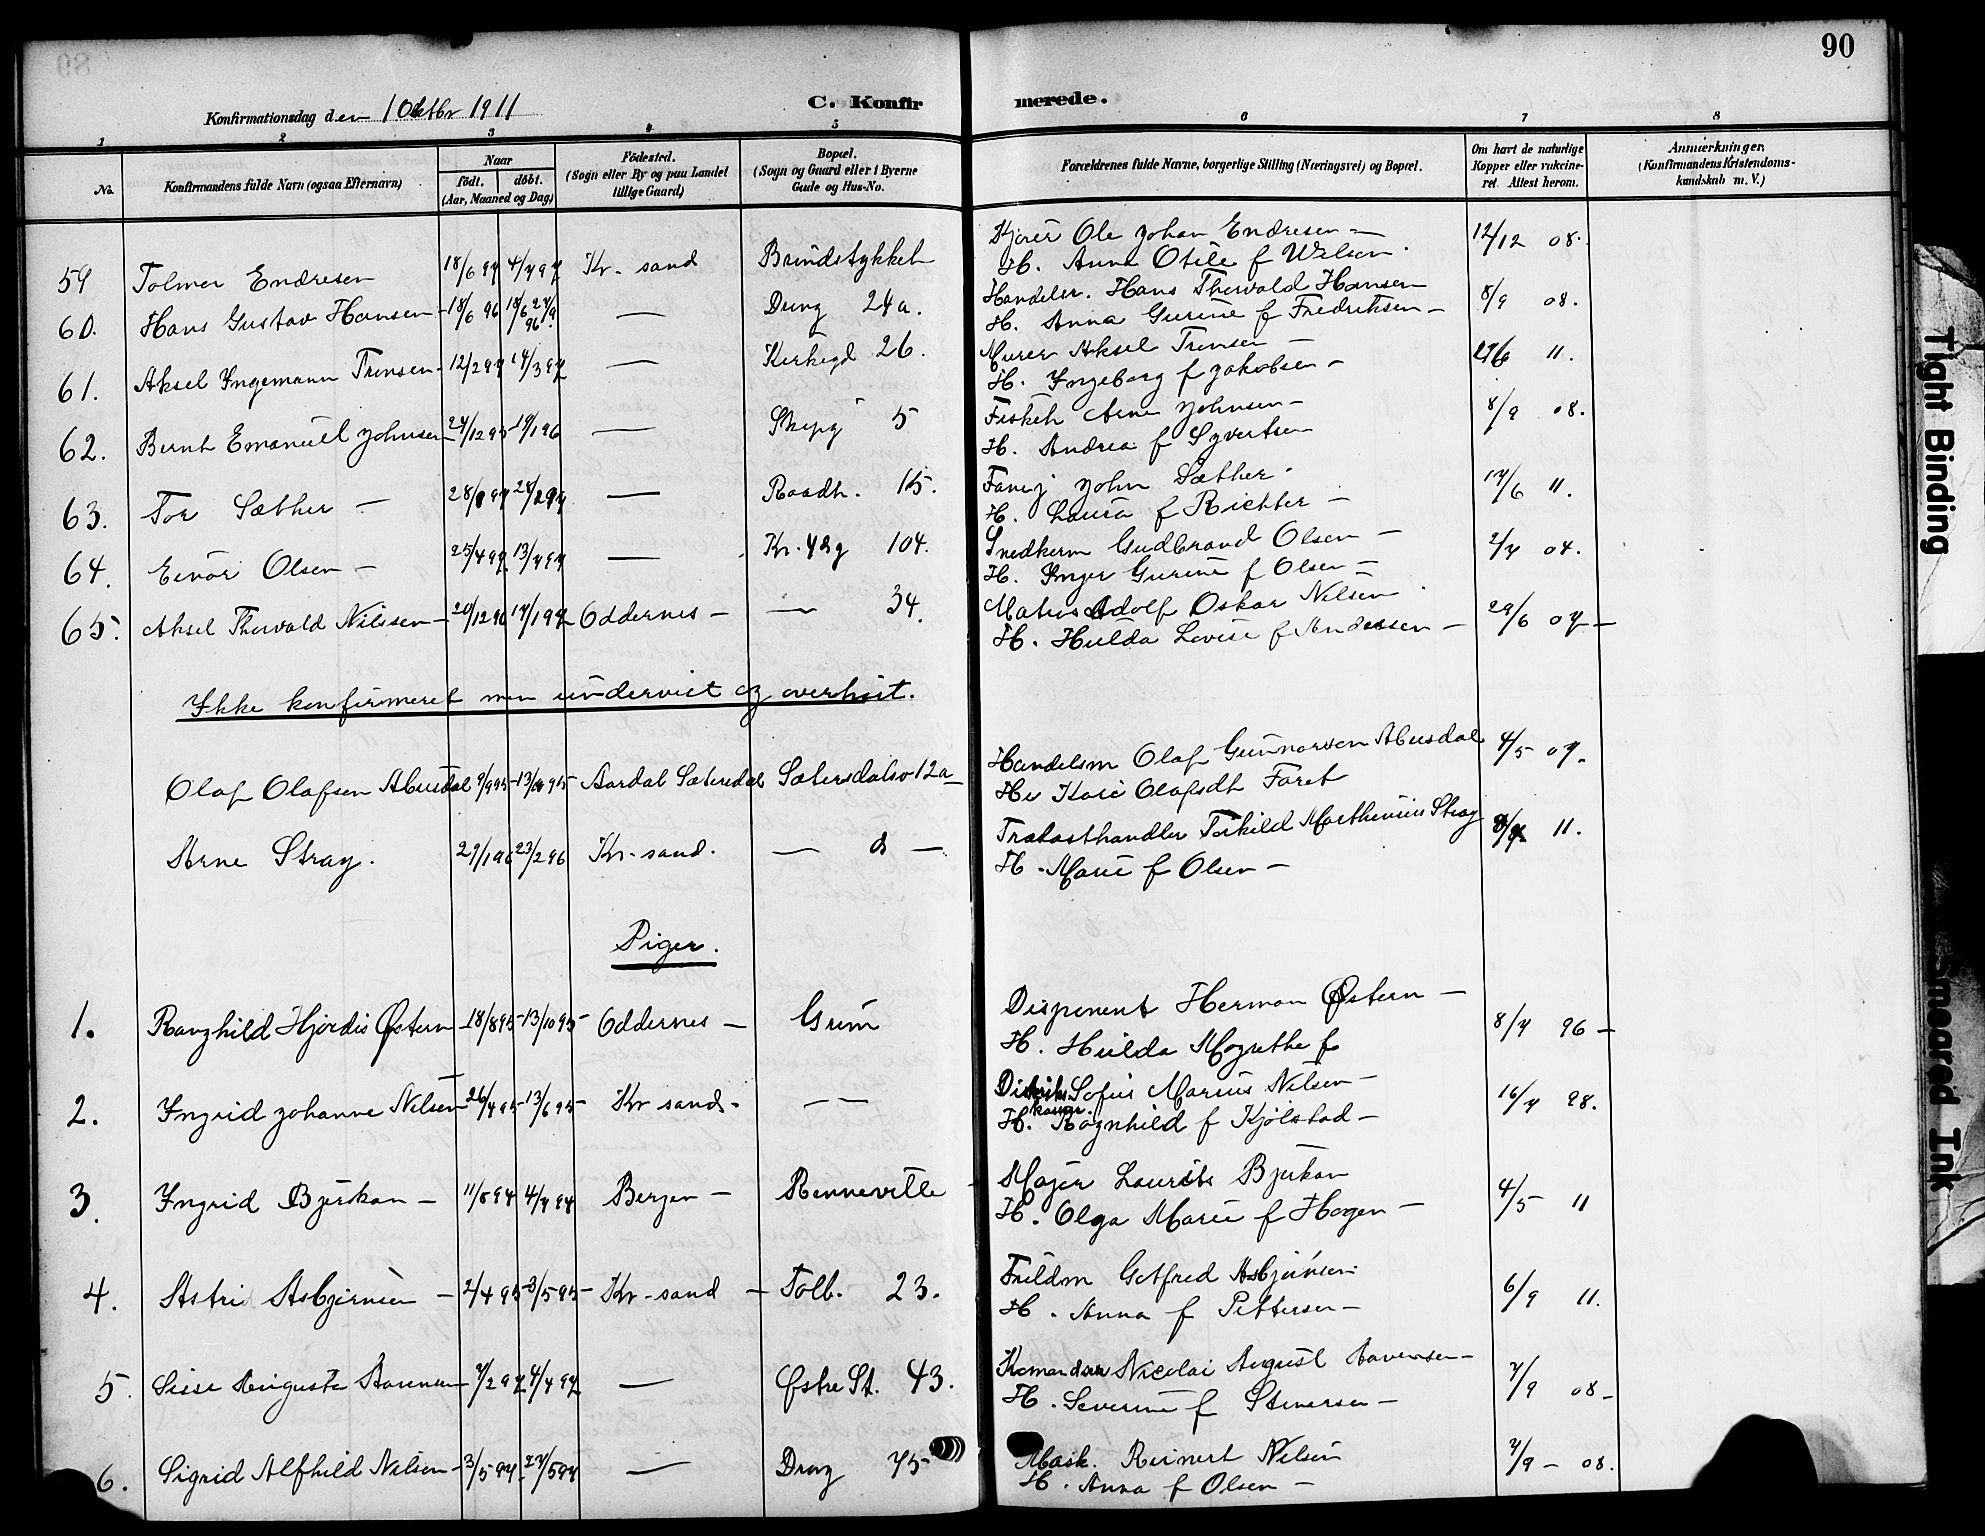 90
Konfirmationsdag den 1 Octbr 1911
C. Konfirmerede.
1 2 3 4 5 6 7 8
No.
Konfirmandens fulde Navn (ogsaa Efternavn)
Naar
født. døbt.
(Aar, Maaned og Dag)
Fødested.
(Sogn eller By og paa Landet
tillige Gaard)
Bopæl.
(Sogn og Gaard eller i Byerne
Gade og Hus-No.
Forældrenes fulde Navne, borgerlige Stilling (Næringsvei) og Bopæl.
Om havt de naturlige
Kopper eller vakcine-
ret. Attest herom.
Anmærkninger.
(Konfirmandens Kristendoms-
kundskab m. V.)
59 Tolmer Endresen 18/6 97 4/7 97 Kr. sand Brindstykket Ole Johan Endresen 12/12 08.
H. Anna Otile f Wilsen
60. Hans Gustav Hansen 18/6 96 Dung 24a. Handelsr. Hans Thorvald Hansen 8/9 08.
H. Anna Gurine f Fredriksen
61. Aksel Yngemann Tensen 12/2 97 14/3 97 Kirkegd 26. Murer Aksel Tensen 11.
H. Yngeborg f Jakobsen
62. Bernt Emanuel Johnsen 27/12 95 19/1 96 Skipg 5 Arne Johnsen 8/9 08.
H. Andrea f Syvertsen
63. Tor Sæther Raadh. 15. John Sæther 17/6 11.
H. Laura f Richter
64. Einar Olsen 25/4 97 13/7 97 Kr. 104. Snedkerm Gudbrand Olsen 2/7 04.
H. Inger Gurine f Olsen
65. Aksel Thorvald Nilssen 20/12 96 17/1 97 Oddernes 34. Matros Adolf Oskar Nilsen 29/6 07
H. Hulda Lovise f Andersen
Ikke konfirmeret men undervist og overhørt.
Olaf Olafsen Abusdal 9/9 95 Aardal Sætersdal Sætersdalsv 12a Handelsm Olaf Gunnarsen Abusdal 4/5 07.
Hu Kari Olafsdt Faret
Arne Stray. 29/1 96 23/2 96 Kr-sand. Trælasthandler Terkild Marthinius Stray 11.
H. Marie f Olsen
Piger.
1. Ragnhild Hjørdis Østern 18/8 95 13/10 95 Oddernes Grim Disponent Herman Østern 8/7 96
H. Hulda Magrethe f
2. Yngrid Johanne Nilsen 26/4 95 13/6 95 Kr sand. Sofus Marius Nilsen 16/7 98.
H. Ragnhild f Kjølstad
3. Yngrid Bjerkan 11/5 94 4/7 94 Bergen Renneville Major Laurits Bjerkan 4/5 11
H. Olga Marie f Hagen
4. Astri Asbjørnsen 2/4 95 3/5 95 Kr-sand Tolb. 23. Fuldm Gotfred Asbjørnsen 6/9 11.
H. Anna f Pettersen
5. Auguste Aarensen 7/2 97 4/4 97 Østre St. 43. Nicolai August Aarensen 7/9 08
H. Severine f Stenersen
6. Sigrid Alfhild Nilsen 3/5 97 27/5 97 Drag 75 Mask. Reinert Nilsen 7/9 08.
H. Anna f Olsen
Tight Binding
Smeared Ink